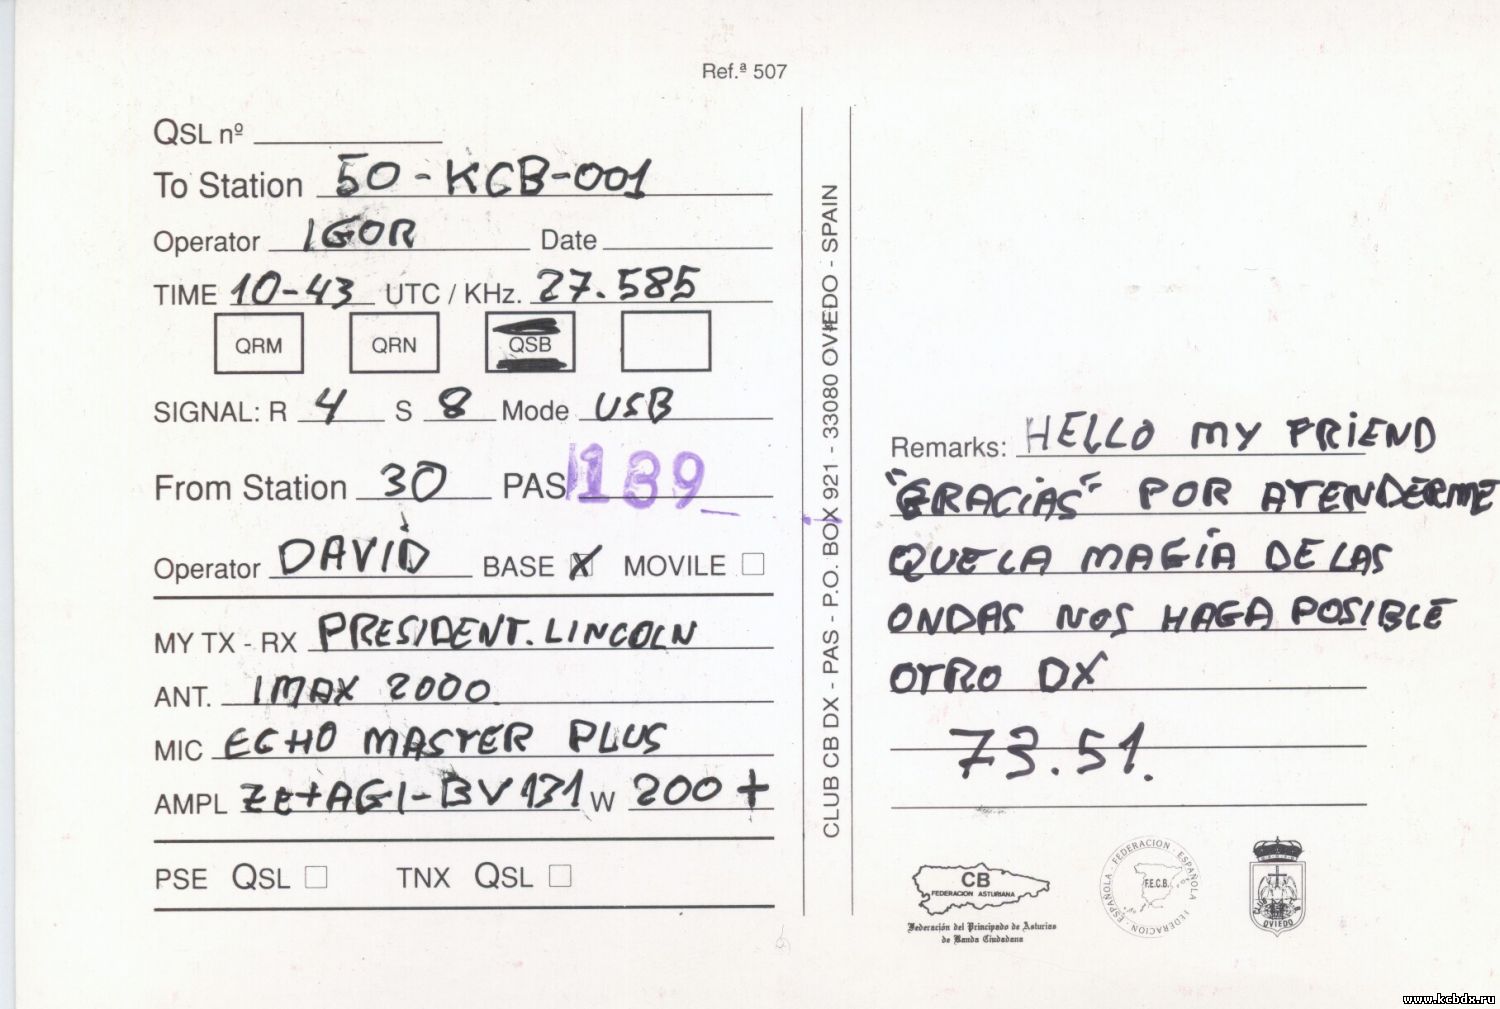 Ref.ª 507
QSL nº
To Station 50-KCB-001
Operator IGOR Date
TIME 10-43 UTC / KHz. 27.585
QRM QRN QSB
SIGNAL: R 4 S 8 Mode USB
From Station 30 PAS 139
Operator DAVID BASE X MOVILE
MY TX - RX PRESIDENT. LINCOLN
ANT. IMAX 2000
MIC ECHO MASTER PLUS
AMPL ZETAGI-BV131 W 200 +
PSE QSL TNX QSL
CLUB CB DX - PAS - P.O. BOX 921 - 33080 OVIEDO - SPAIN
Remarks: HELLO MY FRIEND
"GRACIAS" POR ATENDERME
QUE LA MAGIA DE LAS
ONDAS NOS HAGA POSIBLE
OTRO DX
73.51.
CB
FEDERACION ASTURIANA
Federación del Principado de Asturias
de Banda Ciudadana
FEDERACION - ESPAÑOLA
FEDERACION - ESPAÑOLA
F.E.C.B.
OVIEDO
www.kcbdx.ru